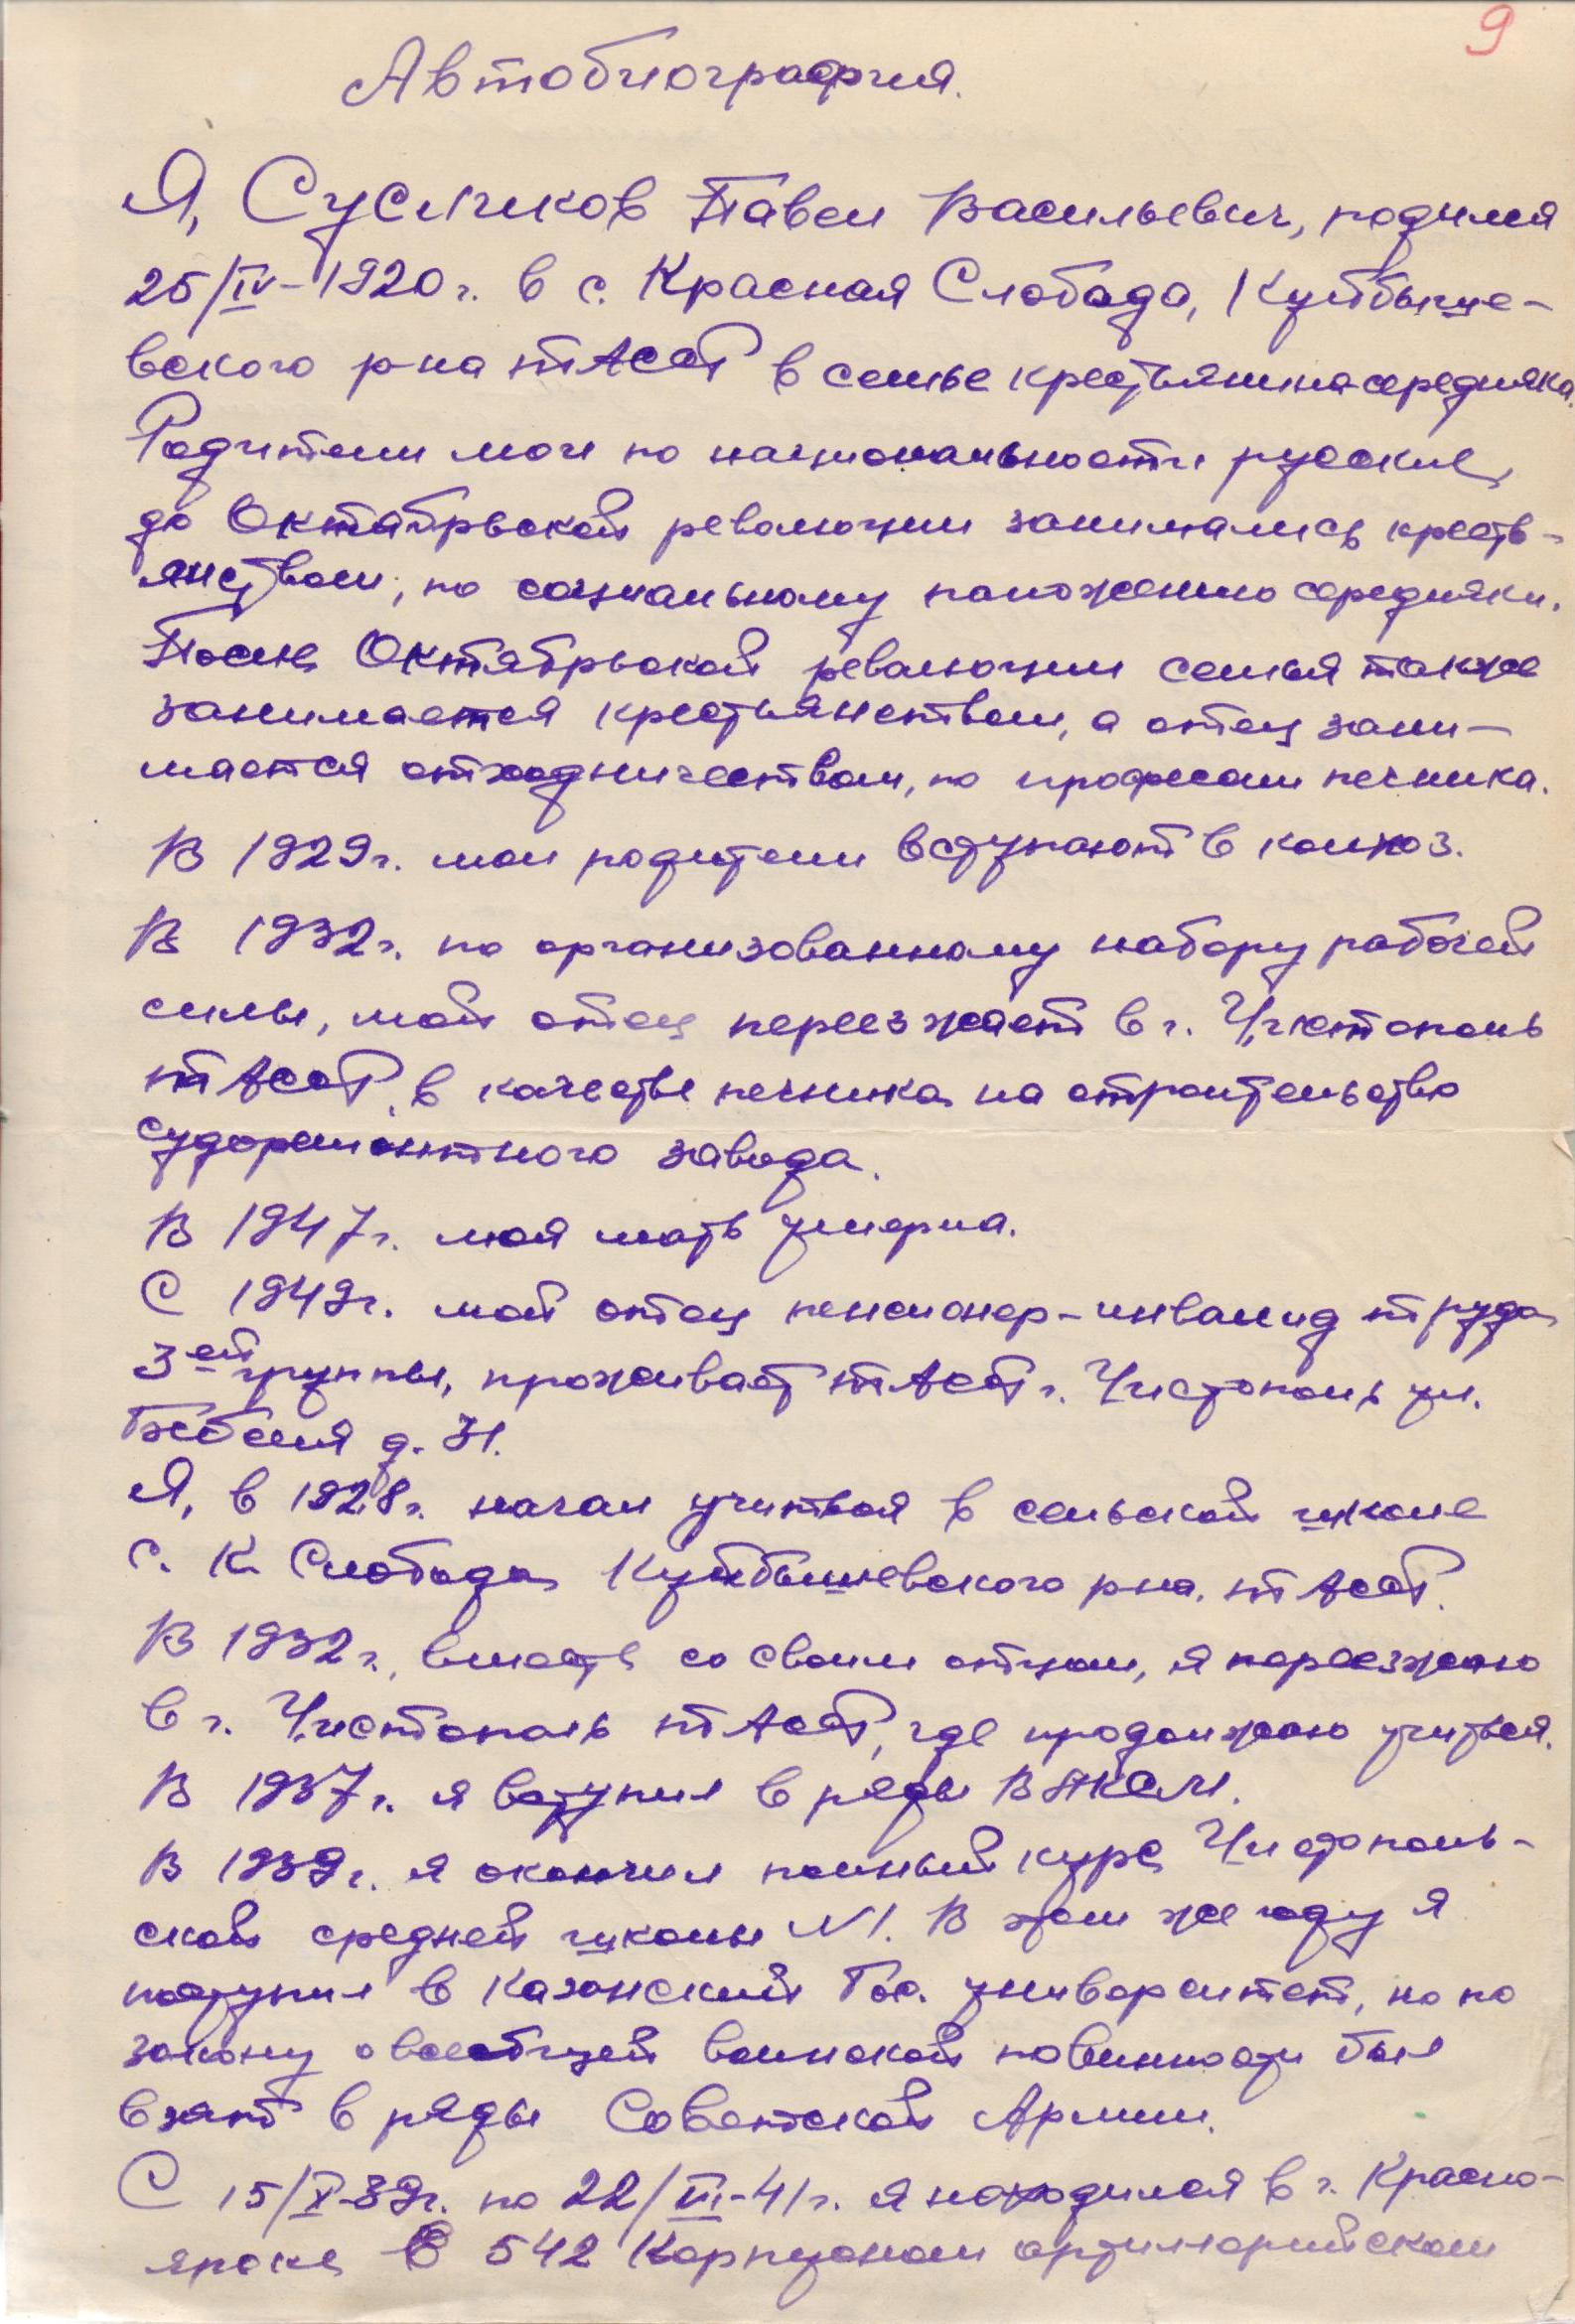 9
Автобиография.
Я, Сусликов Павел Васильевич, родился
25/IV-1920 г. в с. Красная Слобода, Куйбыше-
вского р-на тАССР в семье крестьянина середняка.
Родители мои по национальности русские,
до Октябрьской революции занимались кресть-
янством, по социальному положению середняки.
После Октябрьской революции семья также
занимается крестьянством, а отец зани-
мается отходничеством, по професси печника.
В 1929 г. мои родители вступают в колхоз.
В 1932 г. по организованному набору рабочей
силы, мой отец переезжает в г. Чистополь
тАССР, в качестве печника на строительство
судоремонтного завода.
В 1947 г. моя мать умерла.
С 1949 г. мой отец пенсионер-инвалид труда
3ей группы, проживает тАССР г. Чистополь ул.
Бебеля д. 31.
Я, в 1928 г. начал учиться в сельской школе
с. К. Слобода Куйбышевского р-на. тАССР.
В 1932 г., вместе со своим отцом, я переезжаю
в г. Чистополь тАССР, где продолжаю учиться.
В 1937 г. я вступил в ряды ВЛКСМ.
В 1939 г. я окончил полный курс Чистополь-
ской средней школы N1. В этом же году я
поступил в Казанский Гос. университет, но по
закону о всеобщей воинской повинности был
взят в ряды Советской Армии.
С 15/X-39 г. по 22/VI-41 г. я находился в г. Красно-
ярске в 542 Корпусном артиллерийском